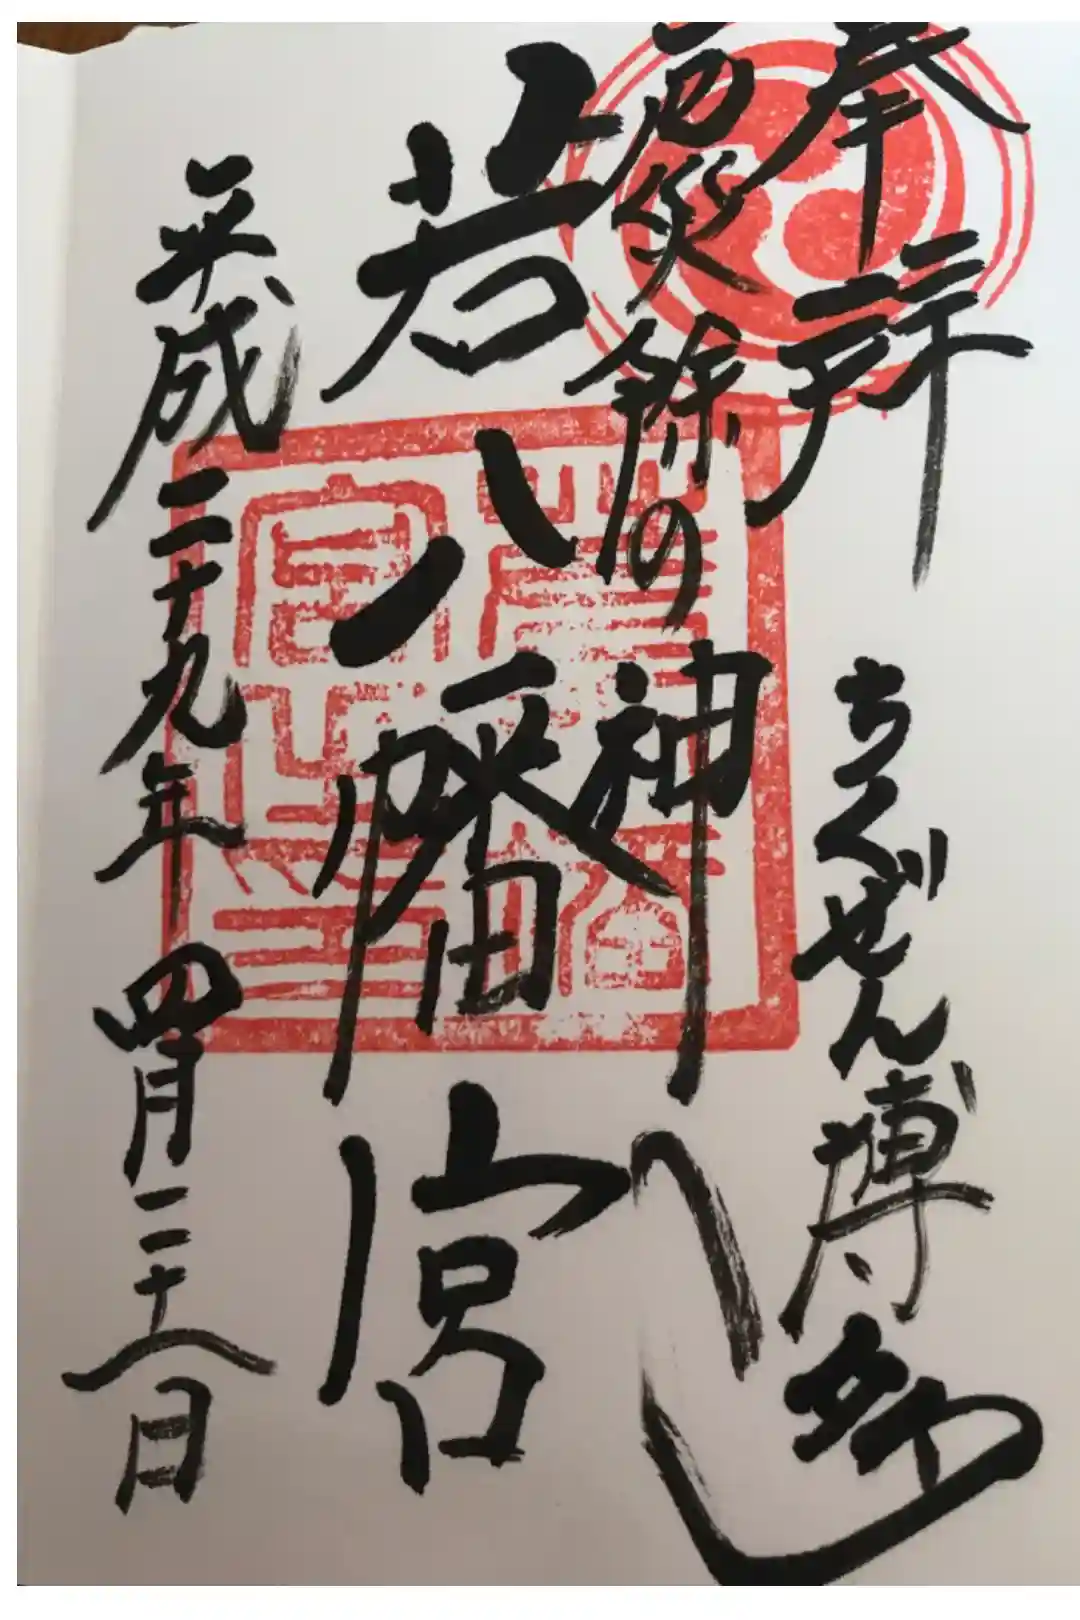 奉拝
ちくぜん博多
厄災除の神
若八幡宮
平成二十九年四月二十八日